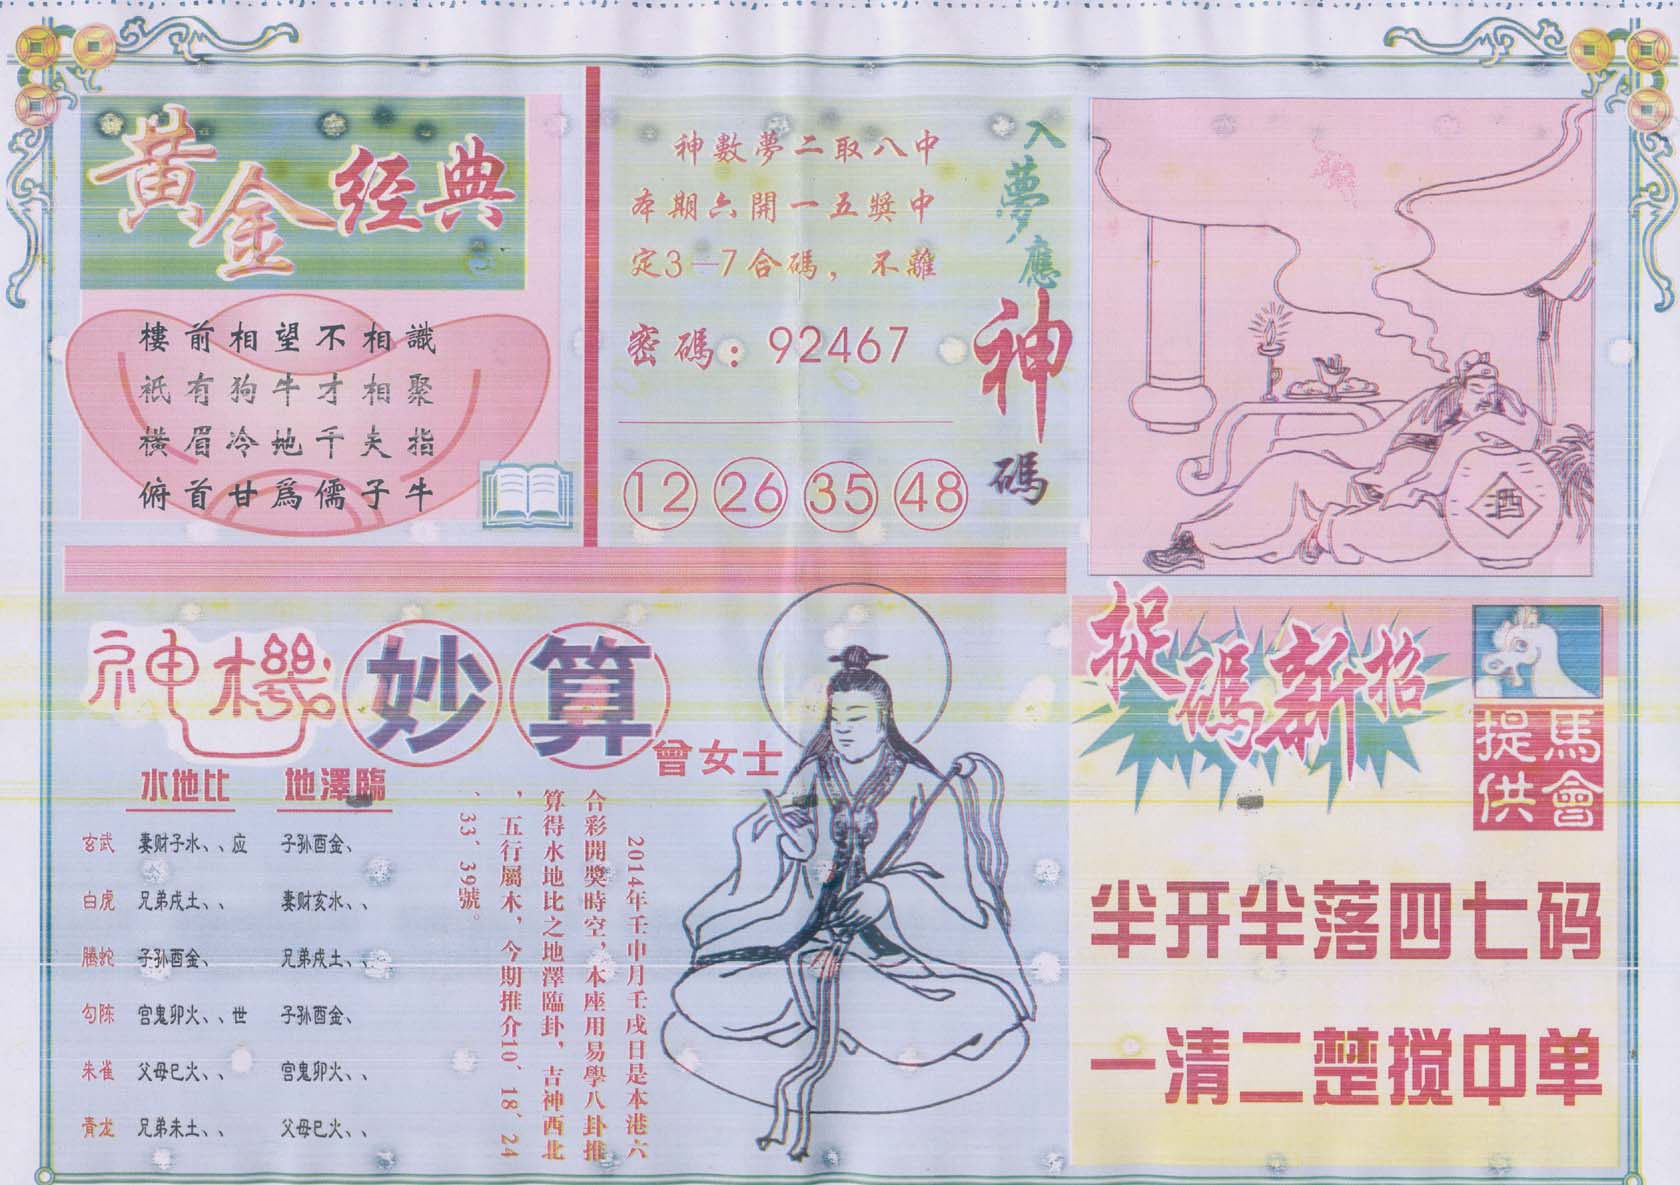 黃金经典
樓前相望不相識
祇有狗牛才相聚
橫眉冷地千夫指
俯首甘爲儒子牛
入夢應神碼
神數夢二取八中
本期六開一五獎中
定3—7合碼，不離
密碼：92467
12 26 35 48
酒
神機妙算
曾女士
水地比 地澤臨
玄武 妻财子水、、应 子孙酉金、
白虎 兄弟戌土、、 妻财亥水、、
騰蛇 子孙酉金、 兄弟戌土、、
勾陈 宫鬼卯火、、世 子孙酉金、
朱雀 父母巳火、、 宫鬼卯火、、
青龙 兄弟未土、、 父母巳火、、
2014年壬申月壬戌日是本港六
合彩開獎時空，本座用易學八卦推
算得水地比之地澤臨卦，吉神西北
，五行屬木，今期推介10、18、24
、33、39號。
捉碼新招
馬會
提供
半开半落四七码
一清二楚搅中单